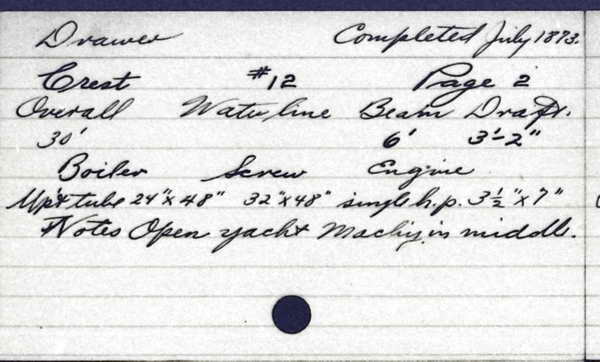 Drawer Completed July 1873.
Crest #12 Page 2
Overall Waterline Beam Draft.
30' 6' 3'-2"
Boiler Screw Engine
Up't tube 24"x48" 32"x48" single h.p. 3½"x7"
Notes Open yacht Machy in middle.